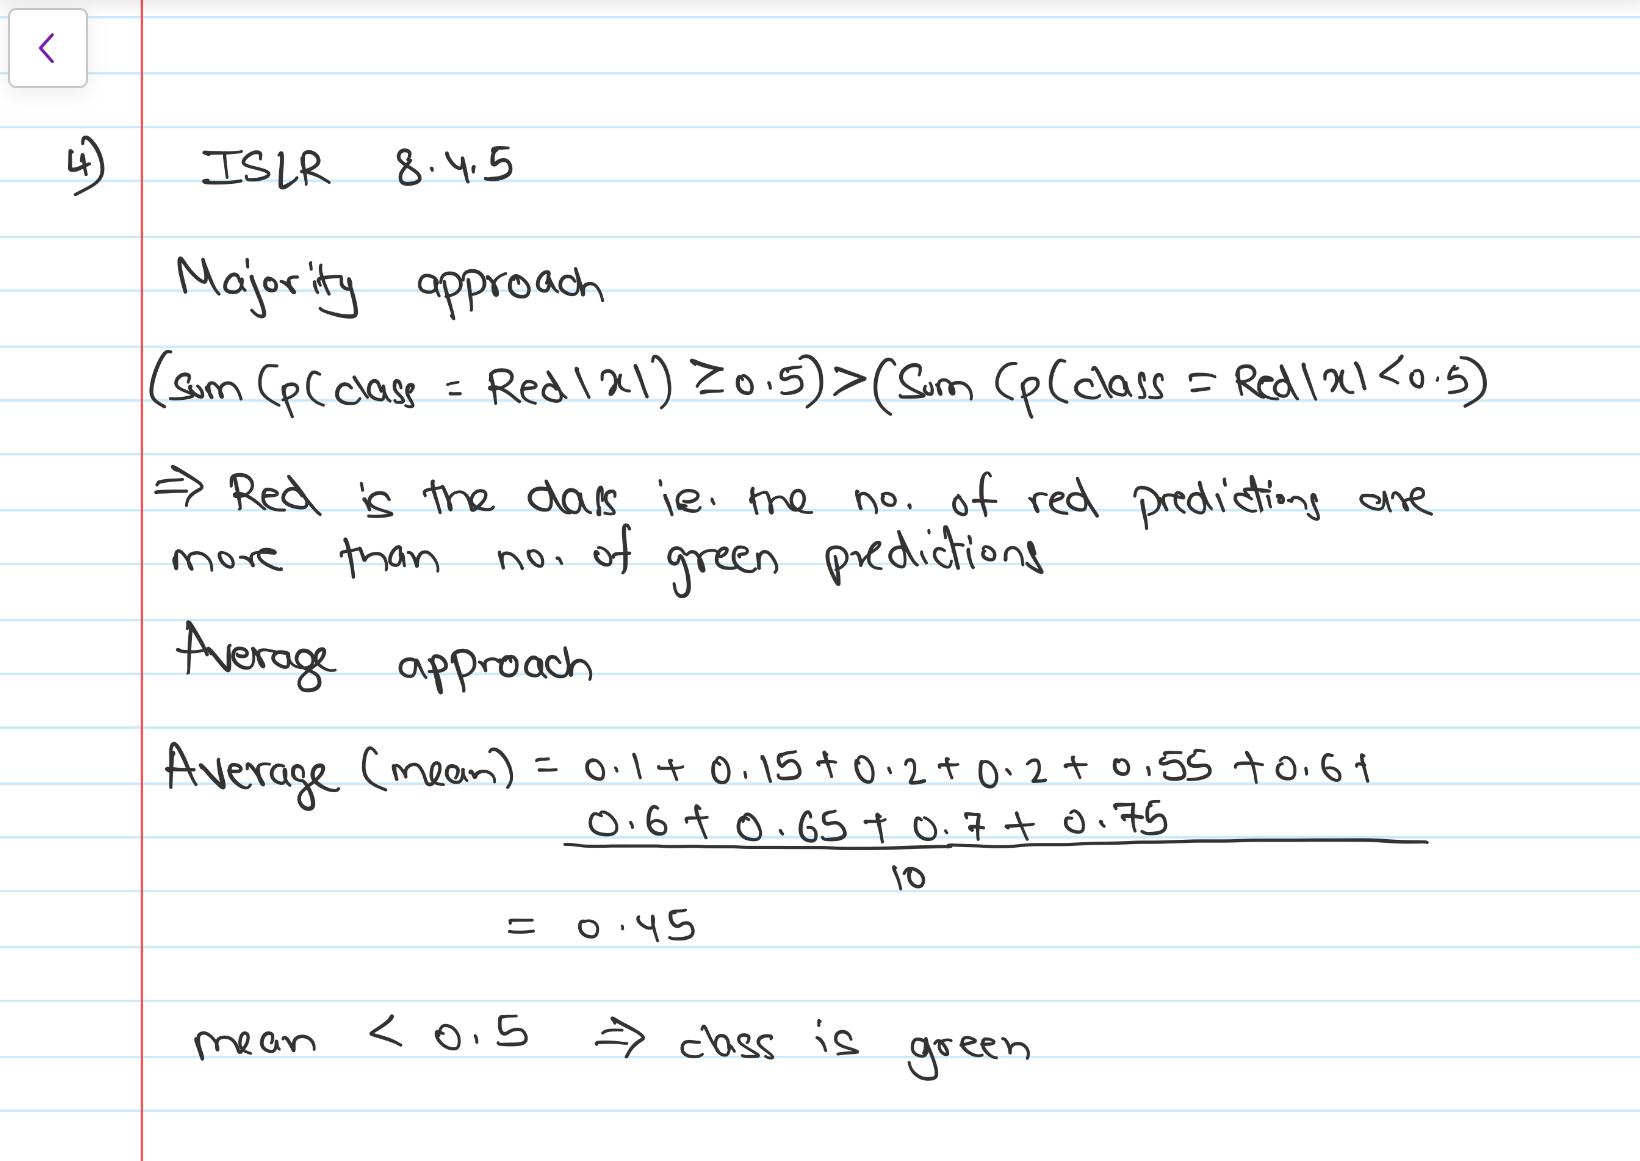 4) ISLR 8.4.5
Majority approach
(Sum (p(class = Red|x|) ≥ 0.5) > (Sum (p(class = Red|x| < 0.5)
⇒ Red is the class ie. the no. of red predictions are
more than no. of green predictions
Average approach
Average (mean) = 0.1 + 0.15 + 0.2 + 0.2 + 0.55 + 0.6 +
0.6 + 0.65 + 0.7 + 0.75
10
= 0.45
mean < 0.5 ⇒ class is green